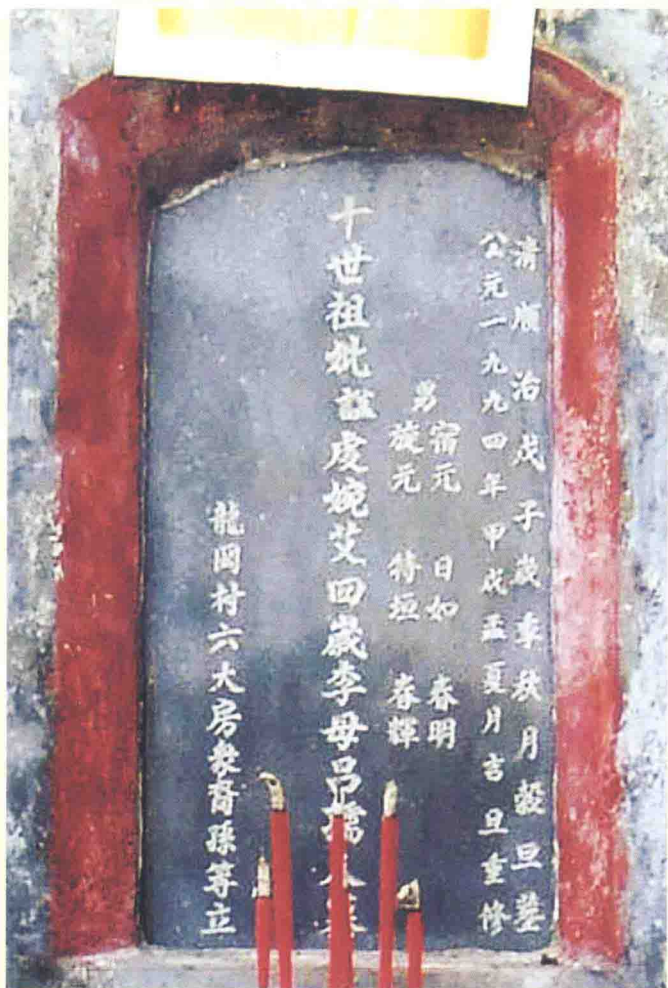 清順治戊子歲季秋月穀旦塋
公元一九九四年甲戌孟夏月吉旦重修
男
宿元 日如 春明
旋元 待垣 春輝
十世祖妣諡虔婉艾回歲李母呂孺人墓
龍岡村六大房衆裔孫等立